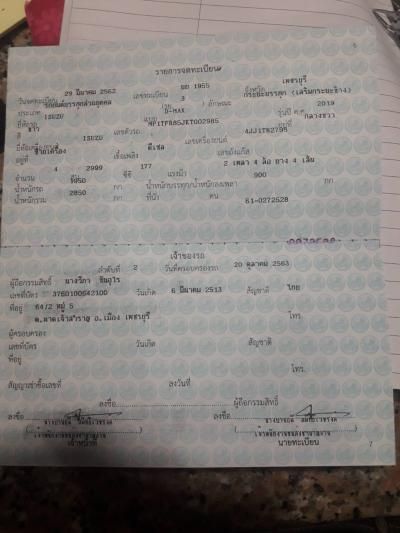 6
รายการจดทะเบียน
วันจดทะเบียน 29 มีนาคม 2562 เลขทะเบียน ผย 1955 จังหวัด เพชรบุรี
ประเภท รถยนต์บรรทุกส่วนบุคคล (รย. 3 ) ลักษณะ กระบะบรรทุก (เสริมกระบะข้าง)
ยี่ห้อรถ ISUZU แบบ D-MAX รุ่นปี ค.ศ. 2019
สี ขาว เลขตัวรถ MP1TFR85JKT002985
ยี่ห้อเครื่องยนต์ ISUZU เลขเครื่องยนต์ 4JJ1TW2795
อยู่ที่ เชื้อเพลิง ดีเซล เลขถังแก๊ส
จำนวน 4 2999 ซีซี 177 แรงม้า 2 เพลา 4 ล้อ ยาง 4 เส้น
น้ำหนักรถ 1950 กก. น้ำหนักบรรทุก/น้ำหนักลงเพลา 900 กก.
น้ำหนักรวม 2850 กก. ที่นั่ง คน 61-0272528
เจ้าของรถ
ลำดับที่ 2 วันที่ครอบครองรถ 20 ตุลาคม 2563
ผู้ถือกรรมสิทธิ์
เลขที่บัตร 3760100642100 วันเกิด 6 มีนาคม 2513 สัญชาติ ไทย
ที่อยู่ 64/2 หมู่ 5
ต.หาดเจ้าสำราญ อ.เมือง เพชรบุรี โทร.
ผู้ครอบครอง
เลขที่บัตร วันเกิด สัญชาติ
ที่อยู่
โทร.
สัญญาเช่าซื้อเลขที่ ลงวันที่
ลงชื่อ ผู้ถือกรรมสิทธิ์
ลงชื่อ ลงชื่อ
เจ้าหน้าที่ นายทะเบียน
7